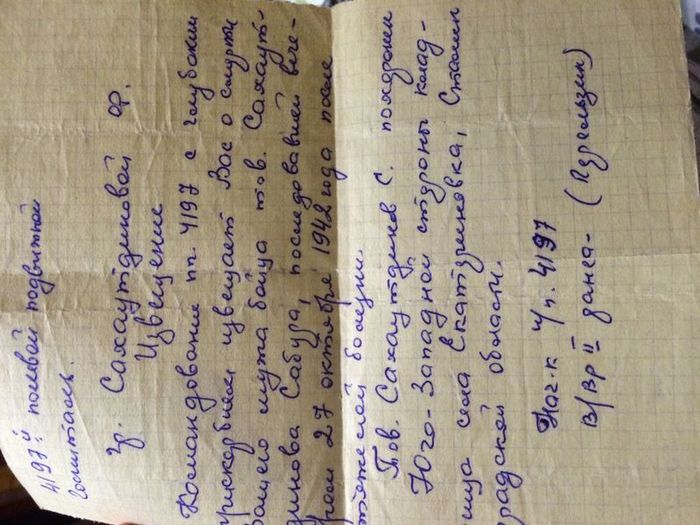 4197й полевой подвижной
госпиталь.
Гр. Сахаутдиновой Ф.
Извещение
Командование пп. 4197 с глубоким
прискорбием извещает Вас о смерти
вашего мужа бойца тов. Сахаут-
динова Сабура, последовавшей вече-
ром 27 октября 1942 года после
тяжелой болезни.
Тов. Сахаутдинов С. похоронен
Юго-Западной стороны клад-
бища села Екатериновка, Сталин
градской области.
Нач-к п/п. 4197
В/вр II ранга